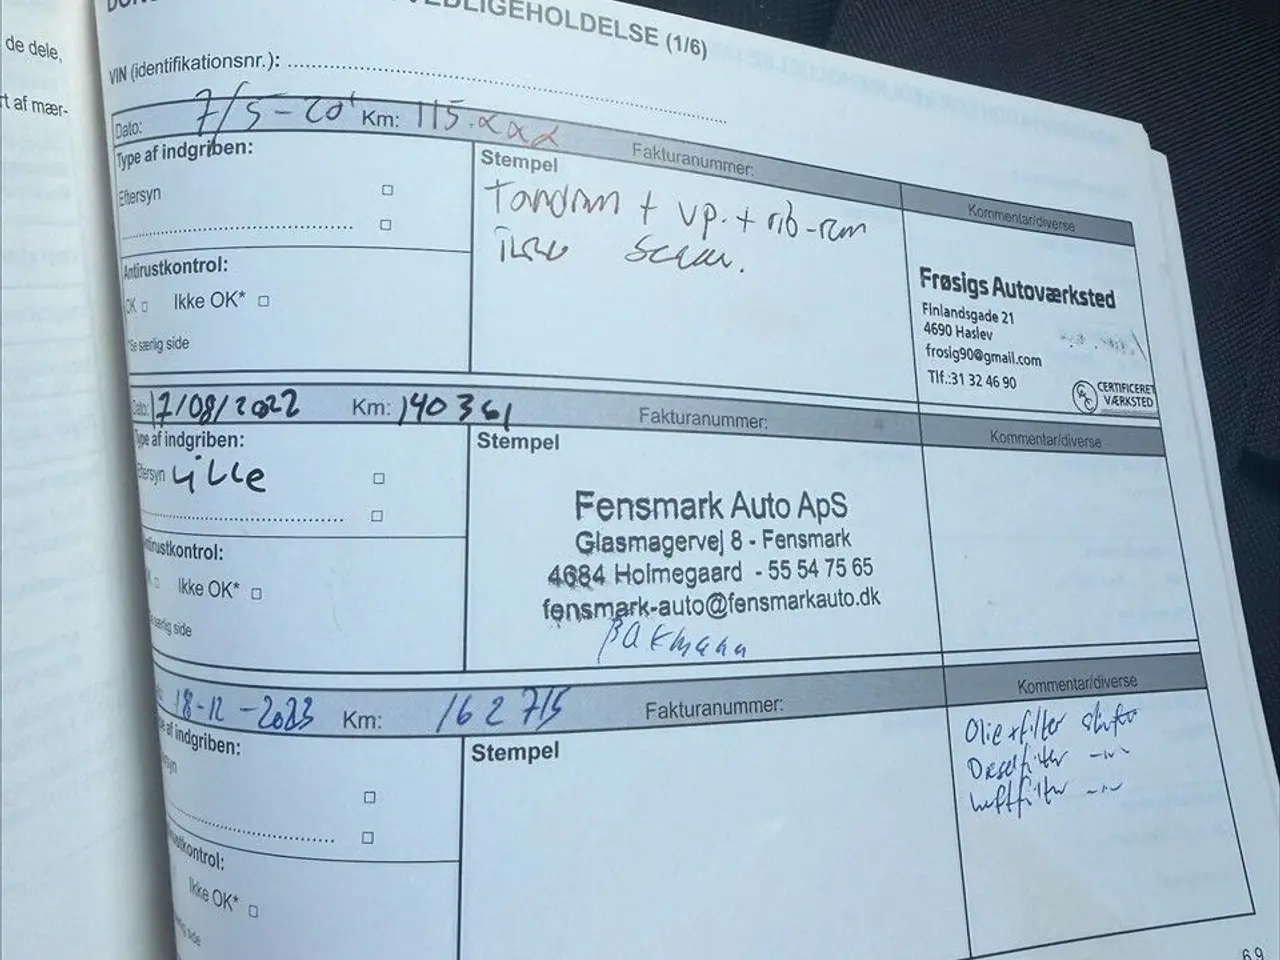 de dele,
rt af mær-
VEDLIGEHOLDELSE (1/6)
VIN (identifikationsnr.):
Dato: 7/5-20 Km: 115.xxx Fakturanummer: Kommentar/diverse
Type af indgriben:
Eftersyn
Antirustkontrol:
OK Ikke OK*
*Se særlig side
Stempel
Tandrem + vp. + rib-rem
Frøsigs Autoværksted
Finlandsgade 21
4690 Haslev
frosig90@gmail.com
Tlf.:31 32 46 90
CERTIFICERET
VÆRKSTED
Dato: 17/08/2022 Km: 140361 Fakturanummer: Kommentar/diverse
Type af indgriben:
Eftersyn Lille
Antirustkontrol:
Ikke OK*
særlig side
Stempel
Fensmark Auto ApS
Glasmagervej 8 - Fensmark
4684 Holmegaard - 55 54 75 65
fensmark-auto@fensmarkauto.dk
18-12-2023 Km: 162715 Fakturanummer: Kommentar/diverse
af indgriben:
Ikke OK*
side
Stempel
Olie+filter skiftet
Dieselfilter -"-
Luftfilter -"-
69